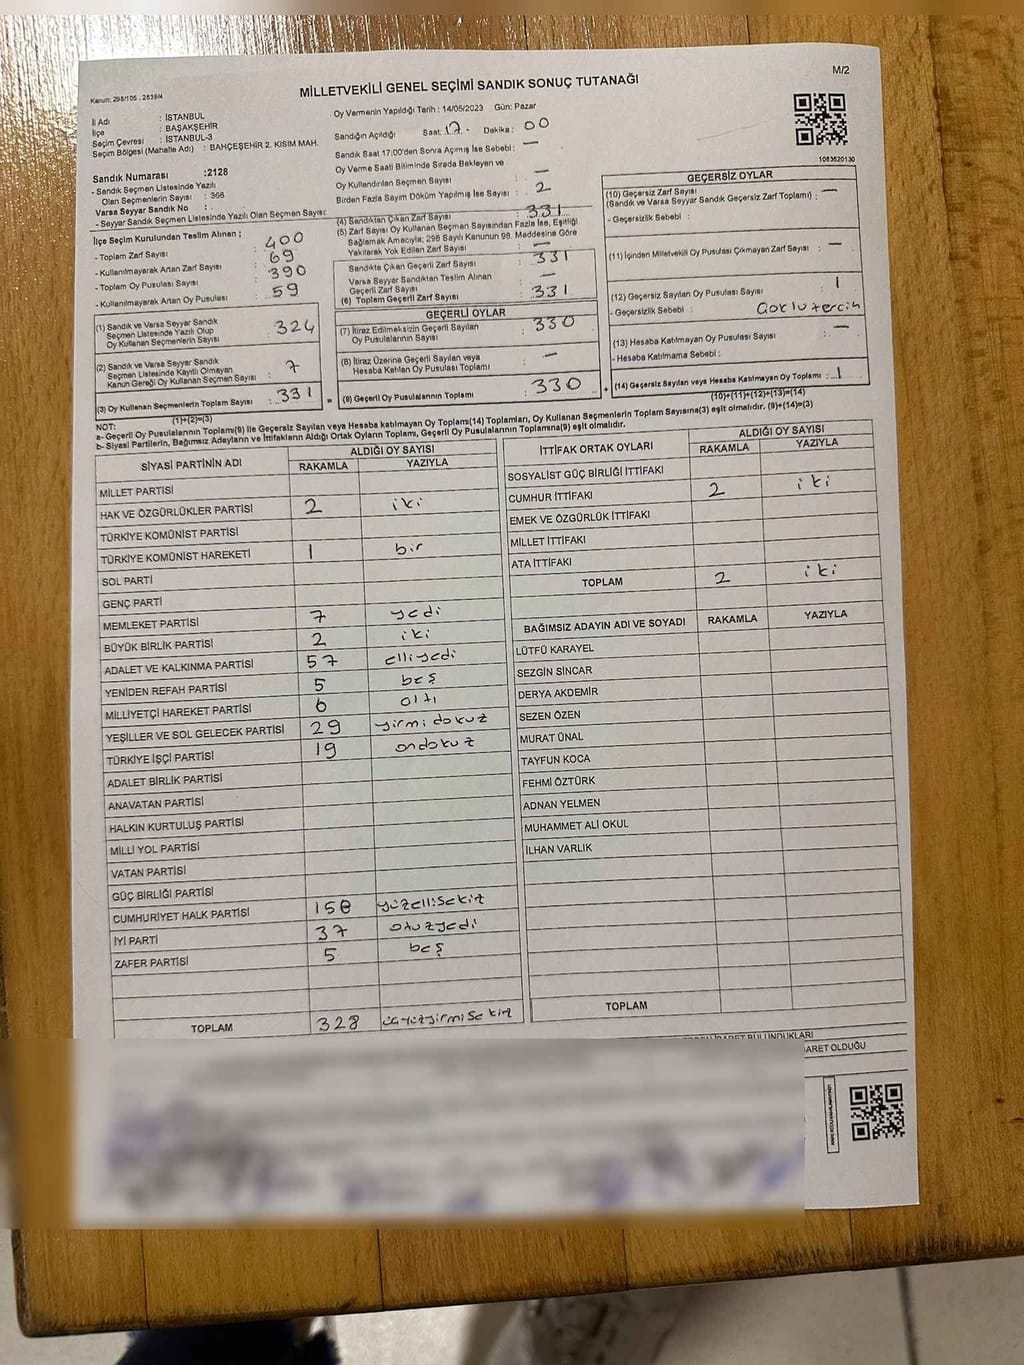 M/2
Kanun: 298/105 . 2839/4
MİLLETVEKİLİ GENEL SEÇİMİ SANDIK SONUÇ TUTANAĞI
İl Adı : İSTANBUL
İlçe : BAŞAKŞEHİR
Seçim Çevresi : İSTANBUL-3
Seçim Bölgesi (Mahalle Adı) : BAHÇEŞEHİR 2. KISIM MAH.
Sandık Numarası :2128
- Sandık Seçmen Listesinde Yazılı
Olan Seçmenlerin Sayısı : 366
Varsa Seyyar Sandık No :
- Seyyar Sandık Seçmen Listesinde Yazılı Olan Seçmen Sayısı:
İlçe Seçim Kurulundan Teslim Alınan ;
- Toplam Zarf Sayısı : 400
- Kullanılmayarak Artan Zarf Sayısı : 69
- Toplam Oy Pusulası Sayısı : 390
- Kullanılmayarak Artan Oy Pusulası : 59
(1) Sandık ve Varsa Seyyar Sandık
Seçmen Listesinde Yazılı Olup
Oy Kullanan Seçmenlerin Sayısı : 324
(2) Sandık ve Varsa Seyyar Sandık
Seçmen Listesinde Kayıtlı Olmayan
Kanun Gereği Oy Kullanan Seçmen Sayısı : 7
(3) Oy Kullanan Seçmenlerin Toplam Sayısı : 331
(1)+(2)=(3)
Oy Vermenin Yapıldığı Tarih : 14/05/2023 Gün: Pazar
Sandığın Açıldığı Saat: 17 - Dakika : 00
Sandık Saat 17:00'den Sonra Açımış İse Sebebi : —
Oy Verme Saati Bitiminde Sırada Bekleyen ve
Oy Kullandırılan Seçmen Sayısı : —
Birden Fazla Sayım Döküm Yapılmış İse Sayısı : 2
(4) Sandıktan Çıkan Zarf Sayısı : 331
(5) Zarf Sayısı Oy Kullanan Seçmen Sayısından Fazla İse, Eşitliği
Sağlamak Amacıyla; 298 Sayılı Kanunun 98. Maddesine Göre
Yakılarak Yok Edilen Zarf Sayısı : —
Sandıkta Çıkan Geçerli Zarf Sayısı : 331
Varsa Seyyar Sandıktan Teslim Alınan
Geçerli Zarf Sayısı : —
(6) Toplam Geçerli Zarf Sayısı : 331
GEÇERLİ OYLAR
(7) İtiraz Edilmeksizin Geçerli Sayılan
Oy Pusulalarının Sayısı : 330
(8) İtiraz Üzerine Geçerli Sayılan veya
Hesaba Katılan Oy Pusulası Toplamı : —
= (9) Geçerli Oy Pusulalarının Toplamı : 330 +
1083620130
GEÇERSİZ OYLAR
(10) Geçersiz Zarf Sayısı
(Sandık ve Varsa Seyyar Sandık Geçersiz Zarf Toplamı) : —
- Geçersizlik Sebebi :
(11) İçinden Milletvekili Oy Pusulası Çıkmayan Zarf Sayısı : —
(12) Geçersiz Sayılan Oy Pusulası Sayısı : 1
- Geçersizlik Sebebi : Çoklu tercih
(13) Hesaba Katılmayan Oy Pusulası Sayısı : —
- Hesaba Katılmama Sebebi :
(14) Geçersiz Sayılan veya Hesaba Katılmayan Oy Toplamı : 1
(10)+(11)+(12)+(13)=(14)
NOT:
a- Geçerli Oy Pusulalarının Toplamı(9) ile Geçersiz Sayılan veya Hesaba katılmayan Oy Toplam(14) Toplamları, Oy Kullanan Seçmenlerin Toplam Sayısına(3) eşit olmalıdır. (9)+(14)=(3)
b- Siyasi Partilerin, Bağımsız Adayların ve İttifakların Aldığı Ortak Oyların Toplamı, Geçerli Oy Pusulalarının Toplamına(9) eşit olmalıdır.
SİYASİ PARTİNİN ADI ALDIĞI OY SAYISI
RAKAMLA YAZIYLA
MİLLET PARTİSİ
HAK VE ÖZGÜRLÜKLER PARTİSİ 2 iki
TÜRKİYE KOMÜNİST PARTİSİ
TÜRKİYE KOMÜNİST HAREKETİ 1 bir
SOL PARTİ
GENÇ PARTİ
MEMLEKET PARTİSİ 7 yedi
BÜYÜK BİRLİK PARTİSİ 2 iki
ADALET VE KALKINMA PARTİSİ 57 elliyedi
YENİDEN REFAH PARTİSİ 5 beş
MİLLİYETÇİ HAREKET PARTİSİ 6 altı
YEŞİLLER VE SOL GELECEK PARTİSİ 29 yirmi dokuz
TÜRKİYE İŞÇİ PARTİSİ 19 ondokuz
ADALET BİRLİK PARTİSİ
ANAVATAN PARTİSİ
HALKIN KURTULUŞ PARTİSİ
MİLLİ YOL PARTİSİ
VATAN PARTİSİ
GÜÇ BİRLİĞİ PARTİSİ
CUMHURİYET HALK PARTİSİ 158 yüzellisekiz
İYİ PARTİ 37 otuzyedi
ZAFER PARTİSİ 5 beş
TOPLAM 328 üçyüzyirmisekiz
İTTİFAK ORTAK OYLARI ALDIĞI OY SAYISI
RAKAMLA YAZIYLA
SOSYALİST GÜÇ BİRLİĞİ İTTİFAKI
CUMHUR İTTİFAKI 2 iki
EMEK VE ÖZGÜRLÜK İTTİFAKI
MİLLET İTTİFAKI
ATA İTTİFAKI
TOPLAM 2 iki
BAĞIMSIZ ADAYIN ADI VE SOYADI RAKAMLA YAZIYLA
LÜTFÜ KARAYEL
SEZGİN SİNCAR
DERYA AKDEMİR
SEZEN ÖZEN
MURAT ÜNAL
TAYFUN KOCA
FEHMİ ÖZTÜRK
ADNAN YELMEN
MUHAMMET ALİ OKUL
İLHAN VARLIK
TOPLAM
BULUNDUKLARI
OLDUĞU